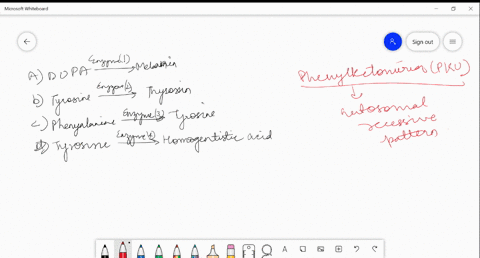 Microsoft Whiteboard
Sign out
A) DOPA Enzyme(1) → Melanin
b) Tyrosine Enzyme(2) → Thyroxin
c) Phenyalanine Enzyme(3) → Tyrosine
d) Tyrosine Enzyme(4) → Homogentistic acid
Phenylketonuria (PKU)
autosomal
recessive
pattern
A